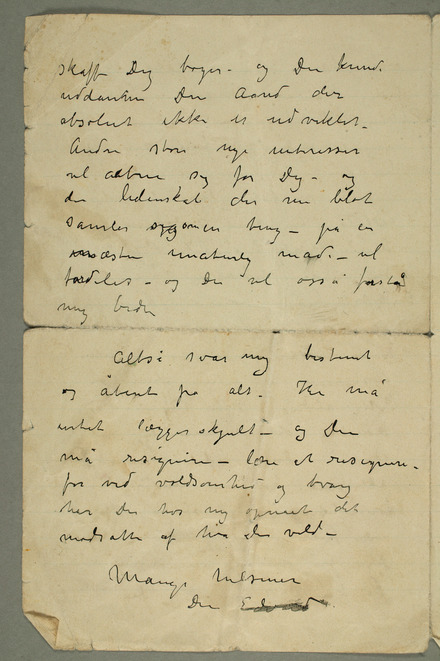 skaffe Dig bøger – og Du kunde
uddanne Din Aand der
absolut ikke er udviklet –
Andre store nye interesser
vil aabne sig for Dig – og
den lidenskab der nu blot
samler sig om en ting – på en
næsten unaturlig måde – vil
fordeles – og Du vil også forstå
mig bedre
Altså svar mig bestemt
og åbent på alt. Her må
intet lægges skjult – og Du
må resignere – lære at resignere –
for ved voldsomhed og tvang
har Du hos mig opnået det
modsatte af hva Du vilde –
Mange hilsener
Din Edvard